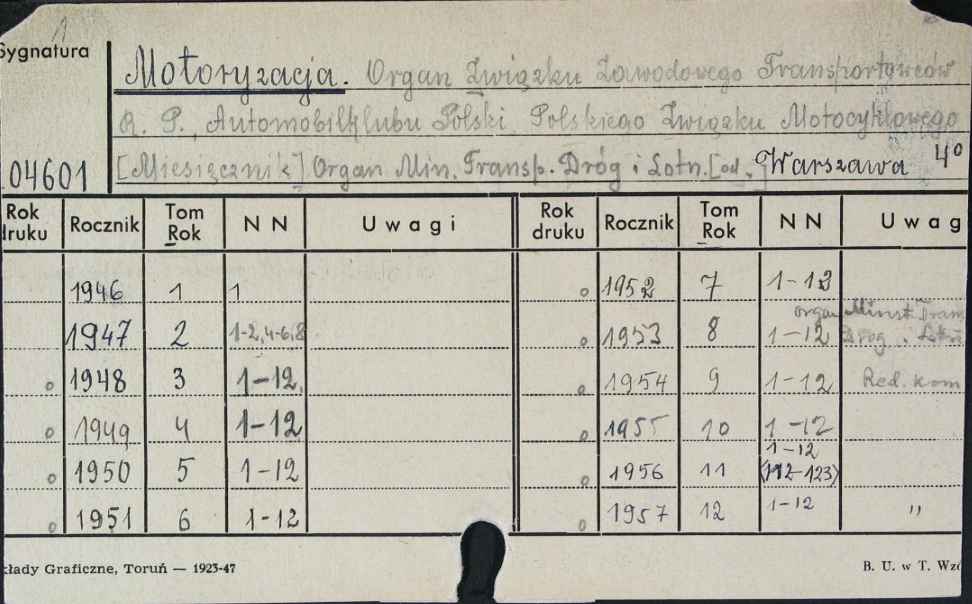 Sygnatura
Motoryzacja. Organ Związku Zawodowego Transportowców
R. P., Automobilklubu Polski, Polskiego Związku Motocyklowego
04601 [Miesięcznik] Organ Min. Transp. Dróg i Lotn. [od. ] Warszawa 4°
Rok druku Rocznik Tom Rok N N Uwagi Rok druku Rocznik Tom Rok N N Uwag
1946 1 1 o 1952 7 1-12
organ Minist. Tran
1947 2 1-2, 4-6, 8 o 1953 8 1-12 Dróg i Lotn
o 1948 3 1-12. o 1954 9 1-12 Red. kom
o 1949 4 1-12 o 1955 10 1-12
1-12
o 1950 5 1-12 o 1956 11 (112-123)
o 1951 6 1-12 o 1957 12 1-12 "
kłady Graficzne, Toruń — 1923-47 B. U. w T. Wzó